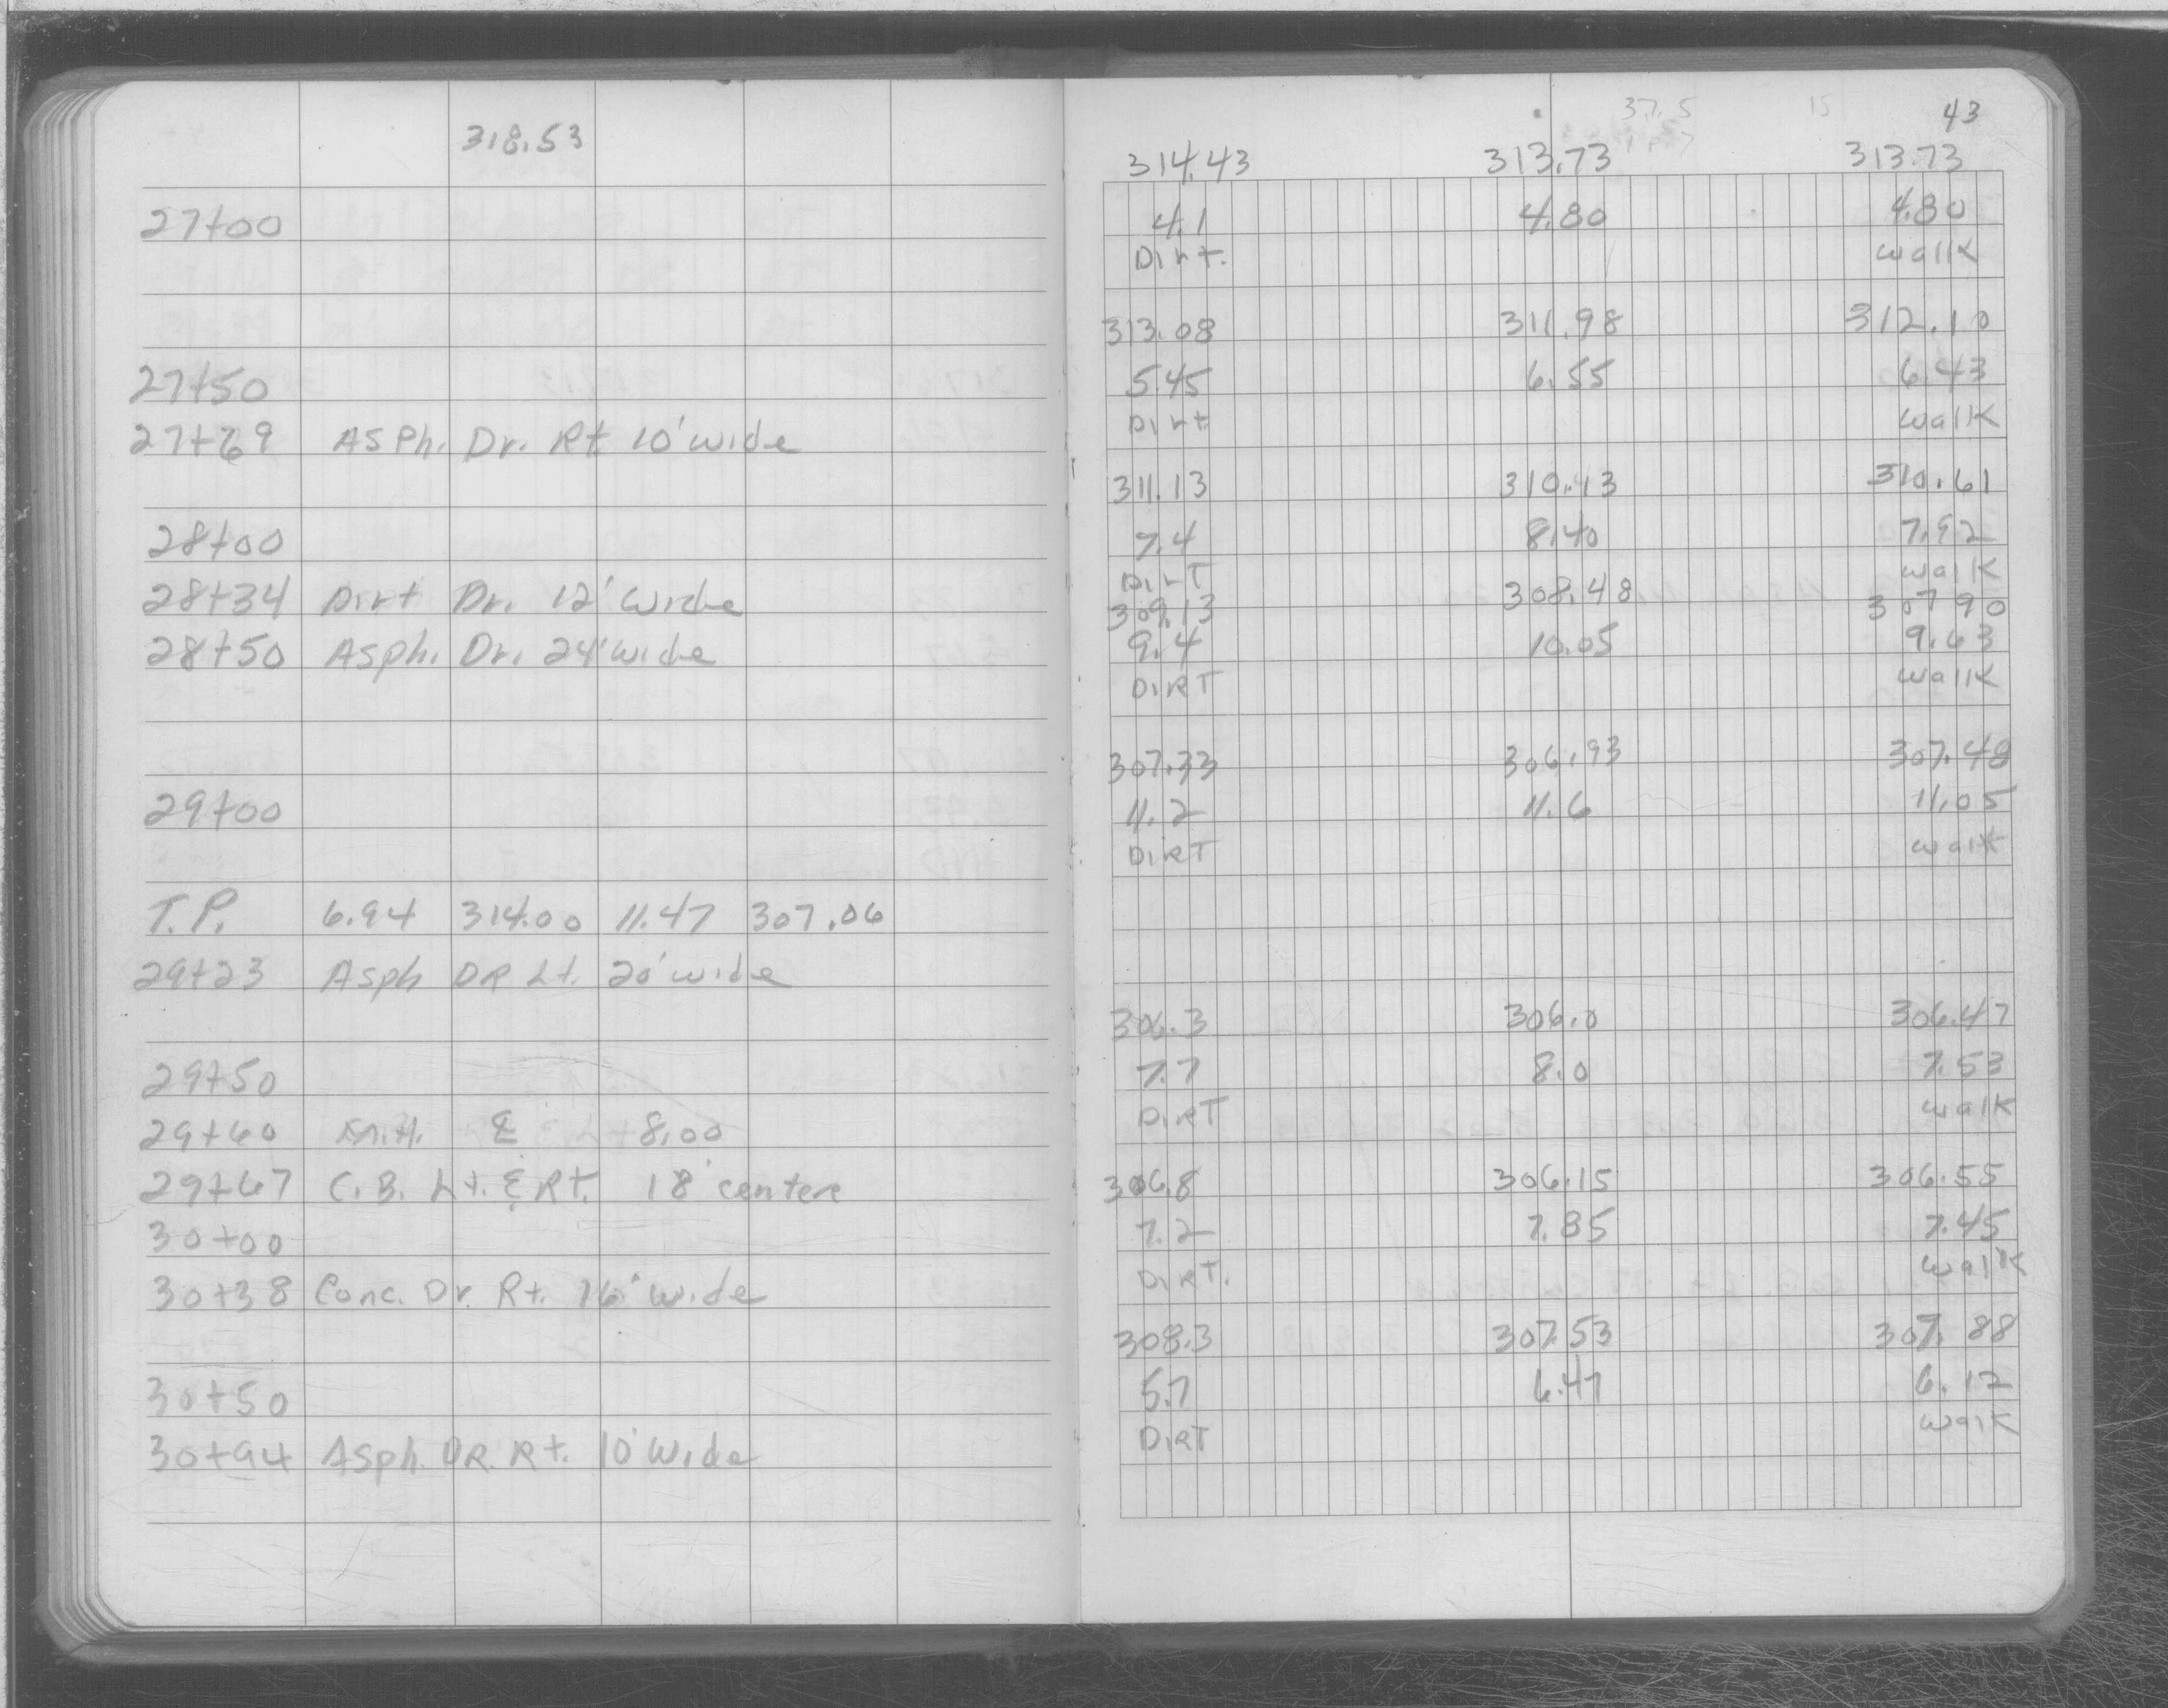 318.53
27+00
27+50
27+69 ASPh. Dr. Rt 10' wide
28+00
28+34 Dirt Dr. 12' wide
28+50 Asph. Dr. 24' wide
29+00
T.P. 6.94 314.00 11.47 307.06
29+23 Asph DR Lt. 20' wide
29+50
29+60 M.H. 8.00
29+67 C.B. Lt. & Rt. 18' centers
30+00
30+38 Conc. Dr. Rt. 16' wide
30+50
30+94 Asph. DR. Rt. 10' wide
37.5 15 43
314.43 313.73 313.73
4.1 4.80 4.80
Dirt. walk
313.08 311.98 312.10
5.45 6.55 6.43
Dirt walk
311.13 310.13 310.61
7.4 8.40 7.92
DirT walk
309.13 308.48 307.90
9.4 10.05 9.63
DIRT walk
307.33 306.93 307.48
11.2 11.6 11.05
DIRT walk
306.3 306.0 306.47
7.7 8.0 7.53
DIRT walk
306.8 306.15 306.55
7.2 7.85 7.45
DIRT. walk
308.3 307.53 307.88
5.7 6.47 6.12
DIRT walk